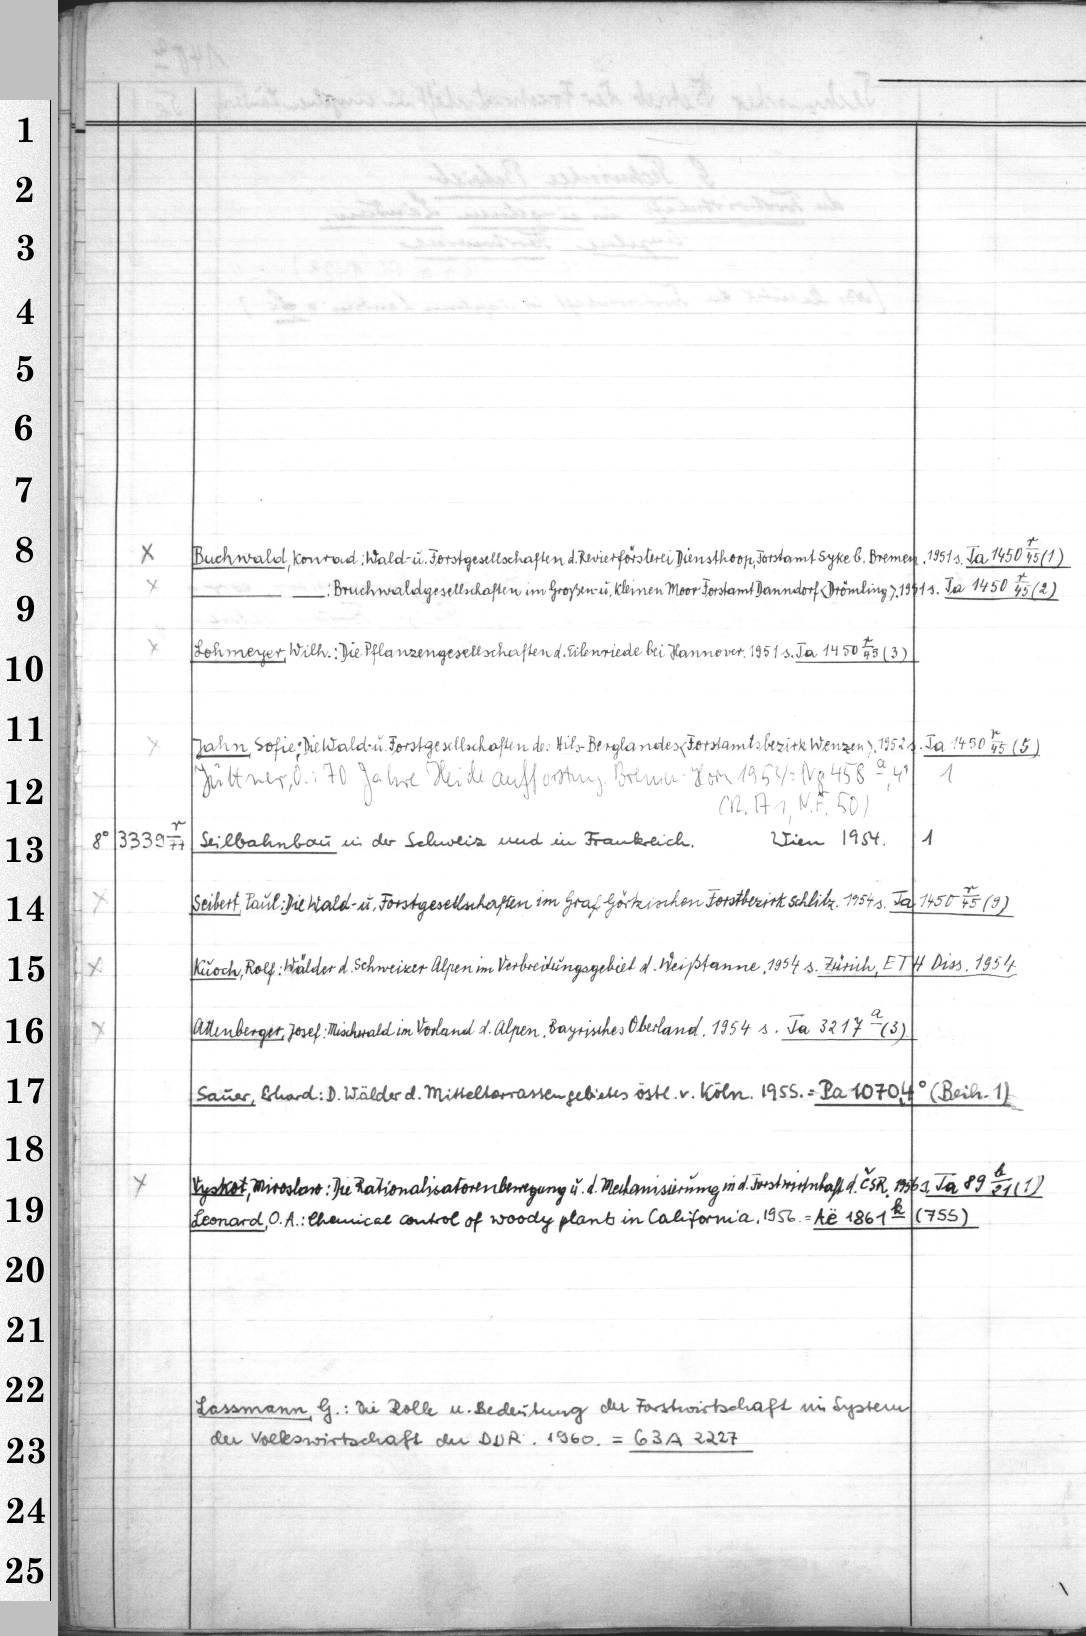 1
2
3
4
5
6
7
8 x Buchwald, Konrad: Wald- u. Forstgesellschaften d. Revierförsterei Diensthoop, Forstamt Syke b. Bremen. 1951 s. Ja 1450 r/45 (1)
x : Bruchwaldgesellschaften im Großen- u. Kleinen Moor Forstamt Danndorf <Drömling>. 1951 s. Ja 1450 r/45 (2)
9
10 x Lohmeyer, Wilh.: Die Pflanzengesellschaften d. Eilenriede bei Hannover. 1951 s. Ja 1450 r/45 (3)
11 x Jahn, Sofie: Die Wald- u. Forstgesellschaften des Hils-Berglandes <Forstamtsbezirk Wenzen>. 1952 s. Ja 1450 r/45 (5)
12 Jüttner, O.: 70 Jahre Heideaufforstung. Bremen-Horn 1954 = Ng 458 a, 4° 1
(R. A 1, N.F. 50)
13 8° 3339 r/77 Seilbahnbau in der Schweiz und in Frankreich. Wien 1954. 1
14 x Seibert, Paul: Die Wald- u. Forstgesellschaften im Graf Görtzischen Forstbezirk Schlitz. 1954 s. Ja 1450 r/45 (9)
15 x Kuoch, Rolf: Wälder d. Schweizer Alpen im Verbreitungsgebiet d. Weißtanne. 1954 s. Zürich, ETH Diss. 1954
16 x Attenberger, Josef: Mischwald im Vorland d. Alpen. Bayrisches Oberland. 1954 s. Ja 3217 a (3)
17 Sauer, Erhard: D. Wälder d. Mittelterrassengebietes östl. v. Köln. 1955. = Pa 1070, 4° (Beih. 1)
18
x Vyskot, Miroslav: Die Rationalisatorenbewegung u. d. Mechanisierung in d. Forstwirtschaft d. ČSR. 1956 s. Ja 89 b/21 (1)
19 Leonard, O. A.: Chemical control of woody plants in California. 1956. = Aë 1861 k (755)
20
21
22 Lassmann, G.: Die Rolle u. Bedeutung der Forstwirtschaft im System
23 der Volkswirtschaft der DDR. 1960. = 63 A 2227
24
25